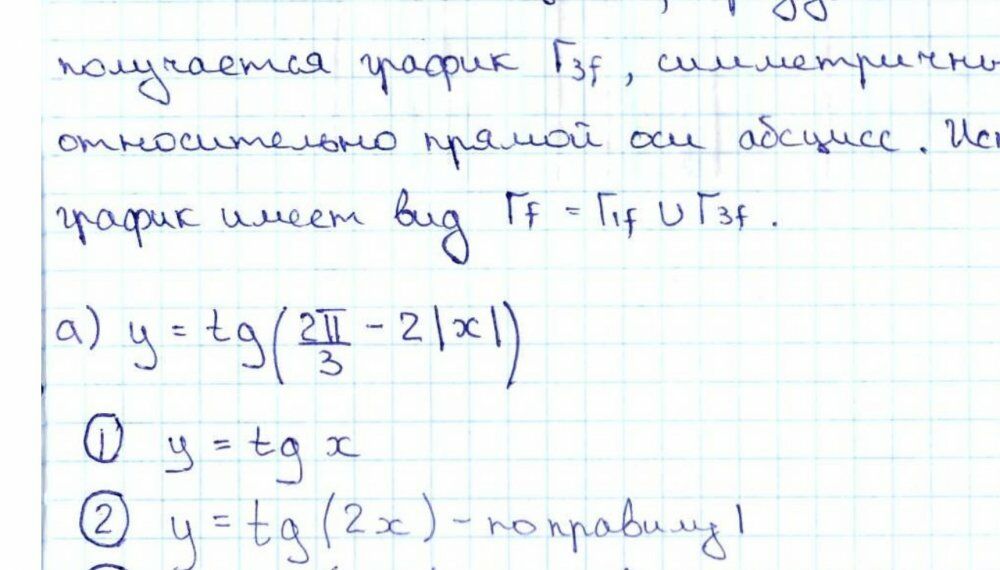 получается график Г₃f, симметричны
относительно прямой оси абсцисс. Ис
график имеет вид Гf = Г₁f ∪ Г₃f.
а) y = tg(2π/3 - 2|x|)
① y = tg x
② y = tg(2x) - по правилу 1